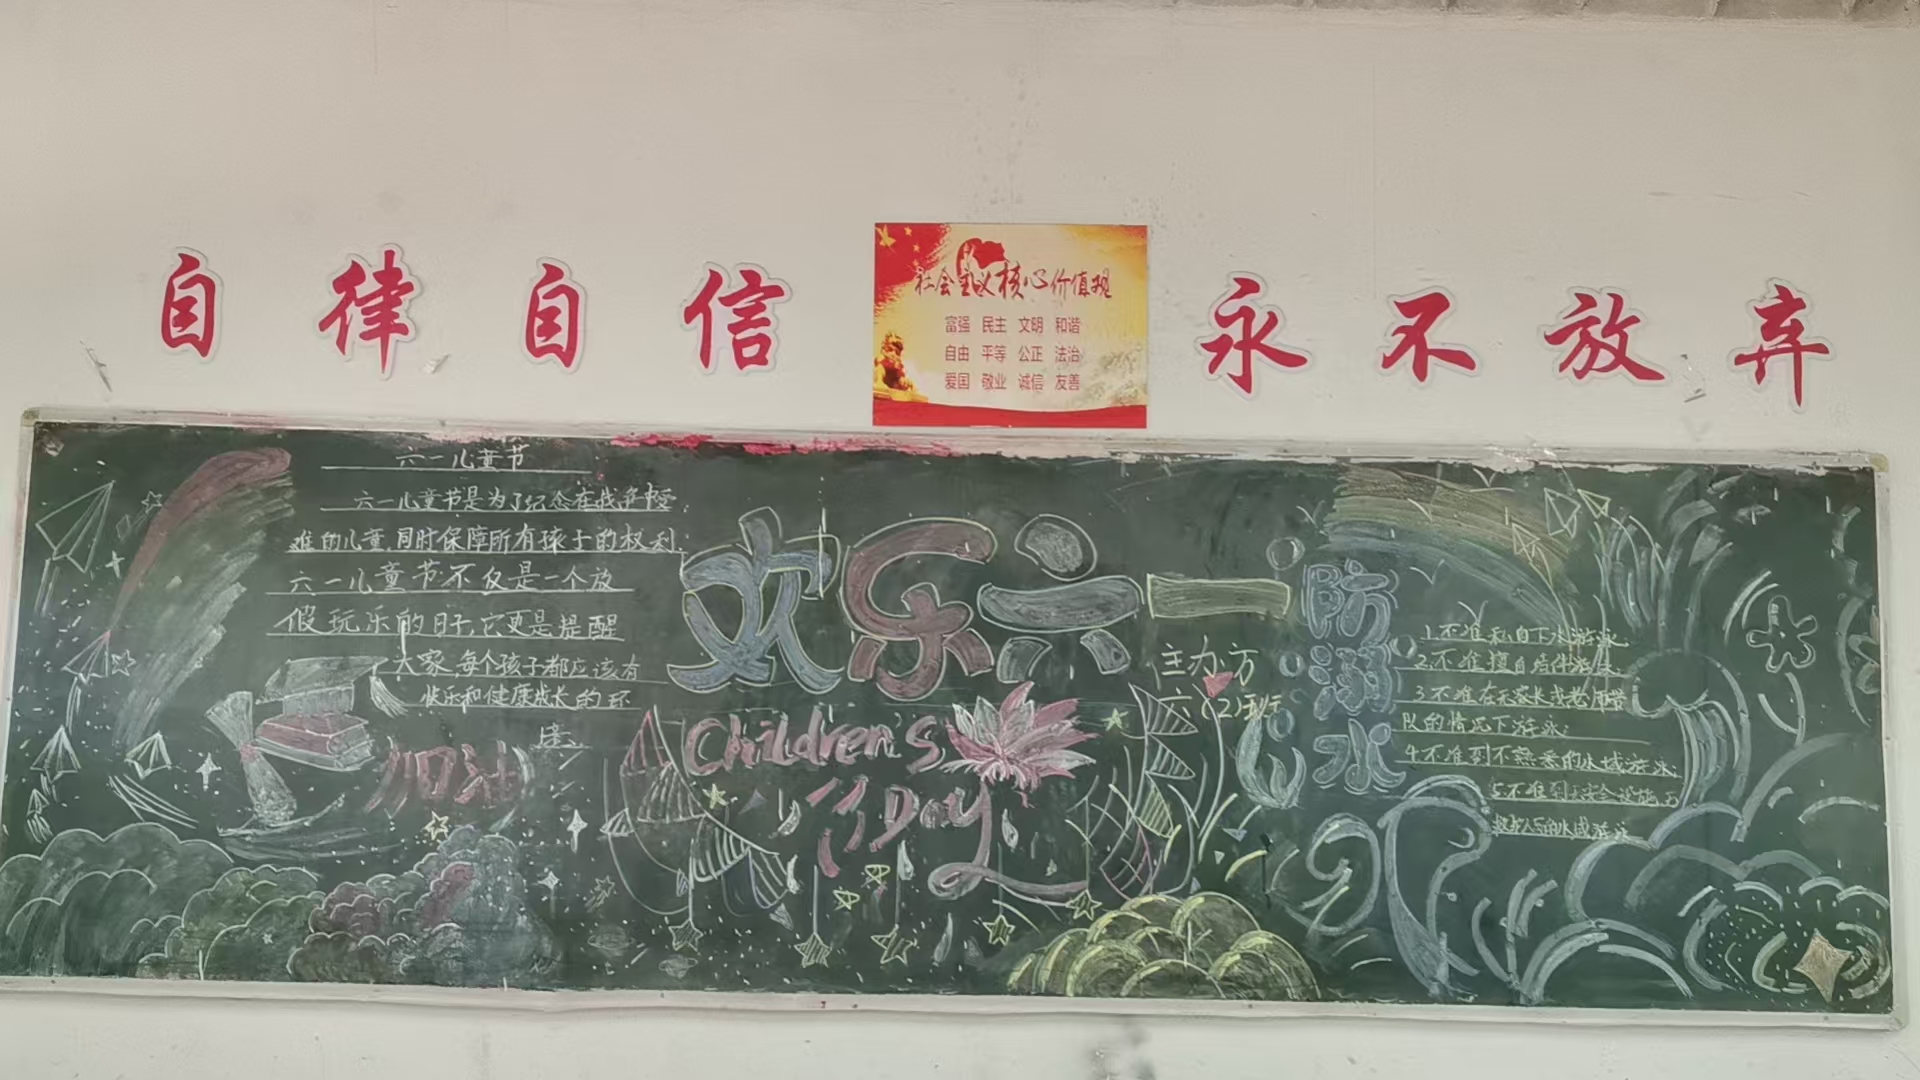 自律自信
永不放弃
社会主义核心价值观
富强 民主 文明 和谐
自由 平等 公正 法治
爱国 敬业 诚信 友善
六一儿童节
六一儿童节是为了纪念在战争中受
难的儿童,同时保障所有孩子的权利,
六一儿童节不仅是一个放
假玩乐的日子,它更是提醒
大家,每个孩子都应该有
快乐和健康成长的环
境。
加油
欢乐六一
Children's
Day
主办方
六(2)班
防溺水
1.不准私自下水游泳
2.不准擅自结伴游泳
3.不准在无家长或老师带
队的情况下游泳
4.不准到不熟悉的水域游泳
5.不准到无安全设施,无
救护人员的水域游泳